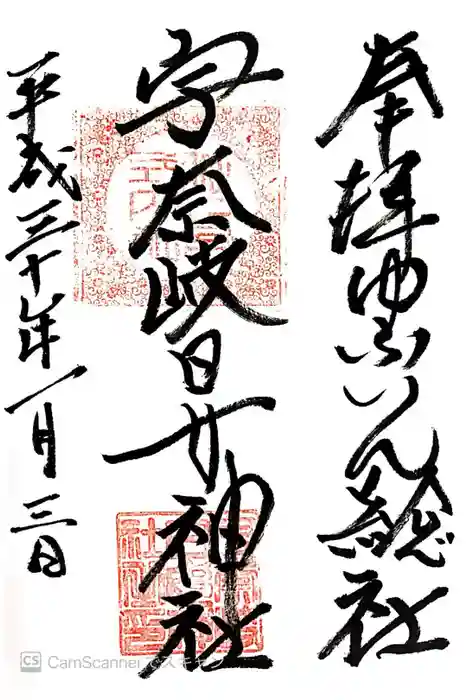 奉拝 ゆふいん総社
宇奈岐日女神社
平成三十年一月三日
CS CamScanner でスキャン